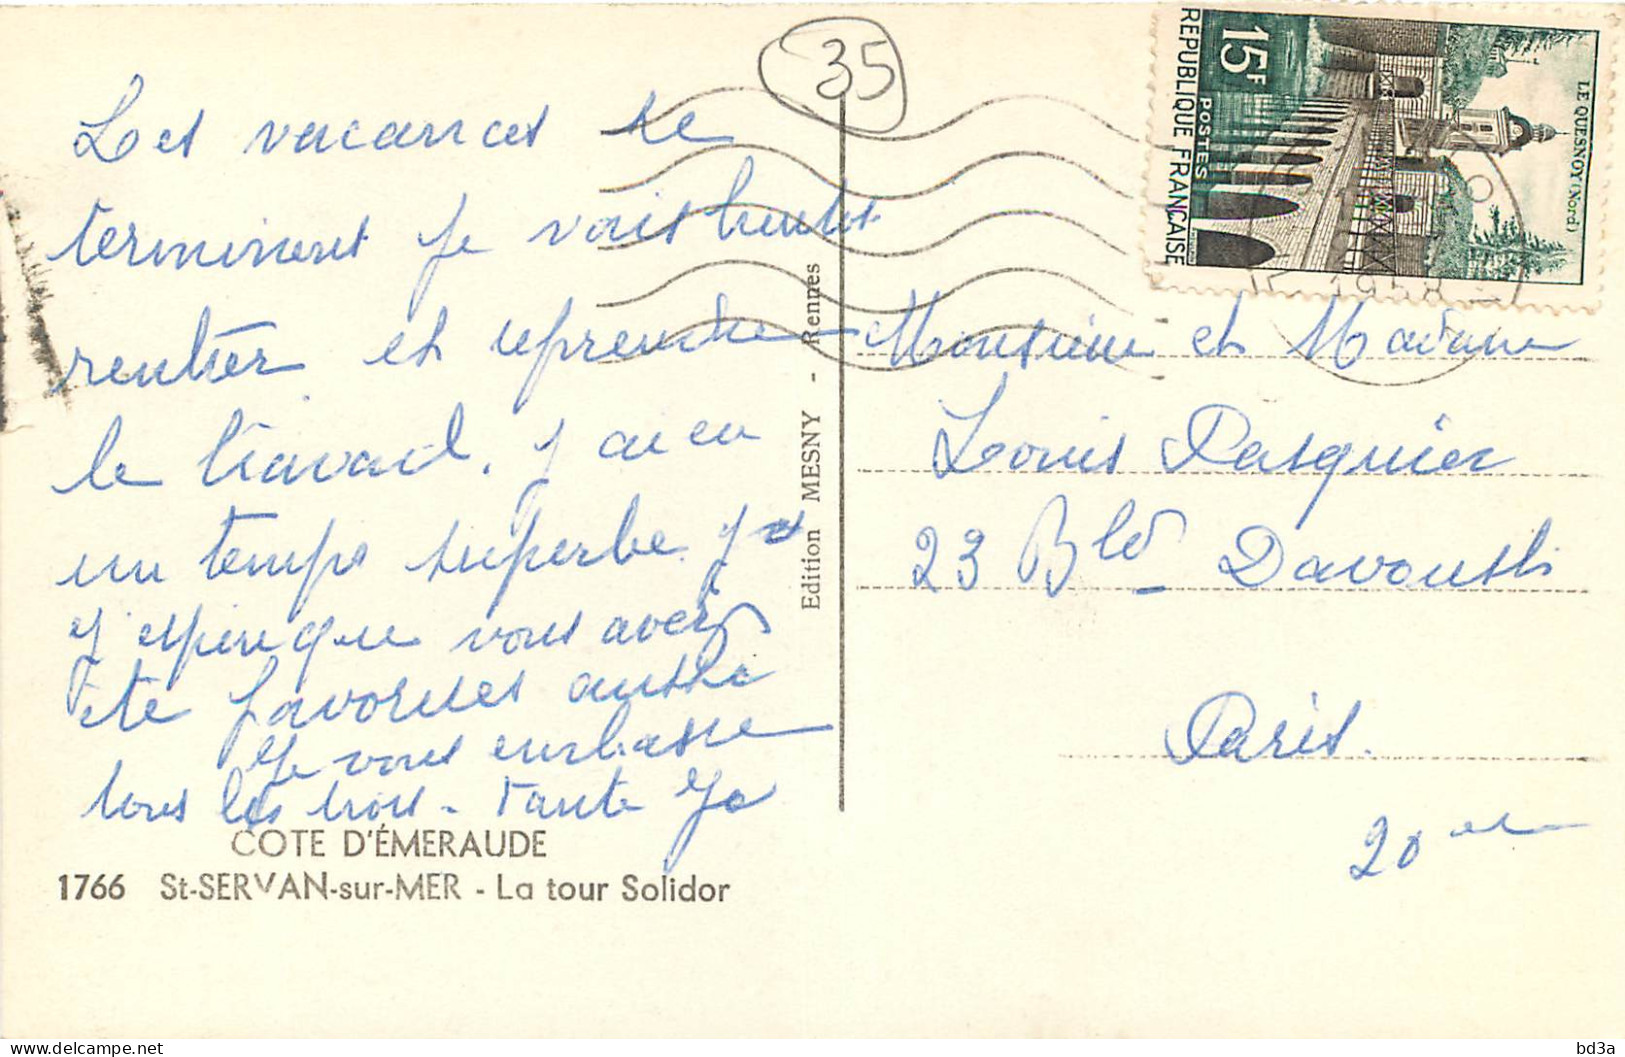 35
Les vacances se
terminent je vais bientot
rentrer et reprendre
le travail. j ai eu
un temps superbe. J
J'espère que vous avez
été favorisés aussi
Je vous embrasse
tous les trois - Tante Jo
COTE D'ÉMERAUDE
1766 St-SERVAN-sur-MER - La tour Solidor
Edition MESNY - Rennes
15F
POSTES
REPUBLIQUE FRANÇAISE
LE QUESNOY (Nord)
1958
Monsieur et Madame
Louis Pasquier
23 Bld Davoust
Paris.
20 e
bd3a